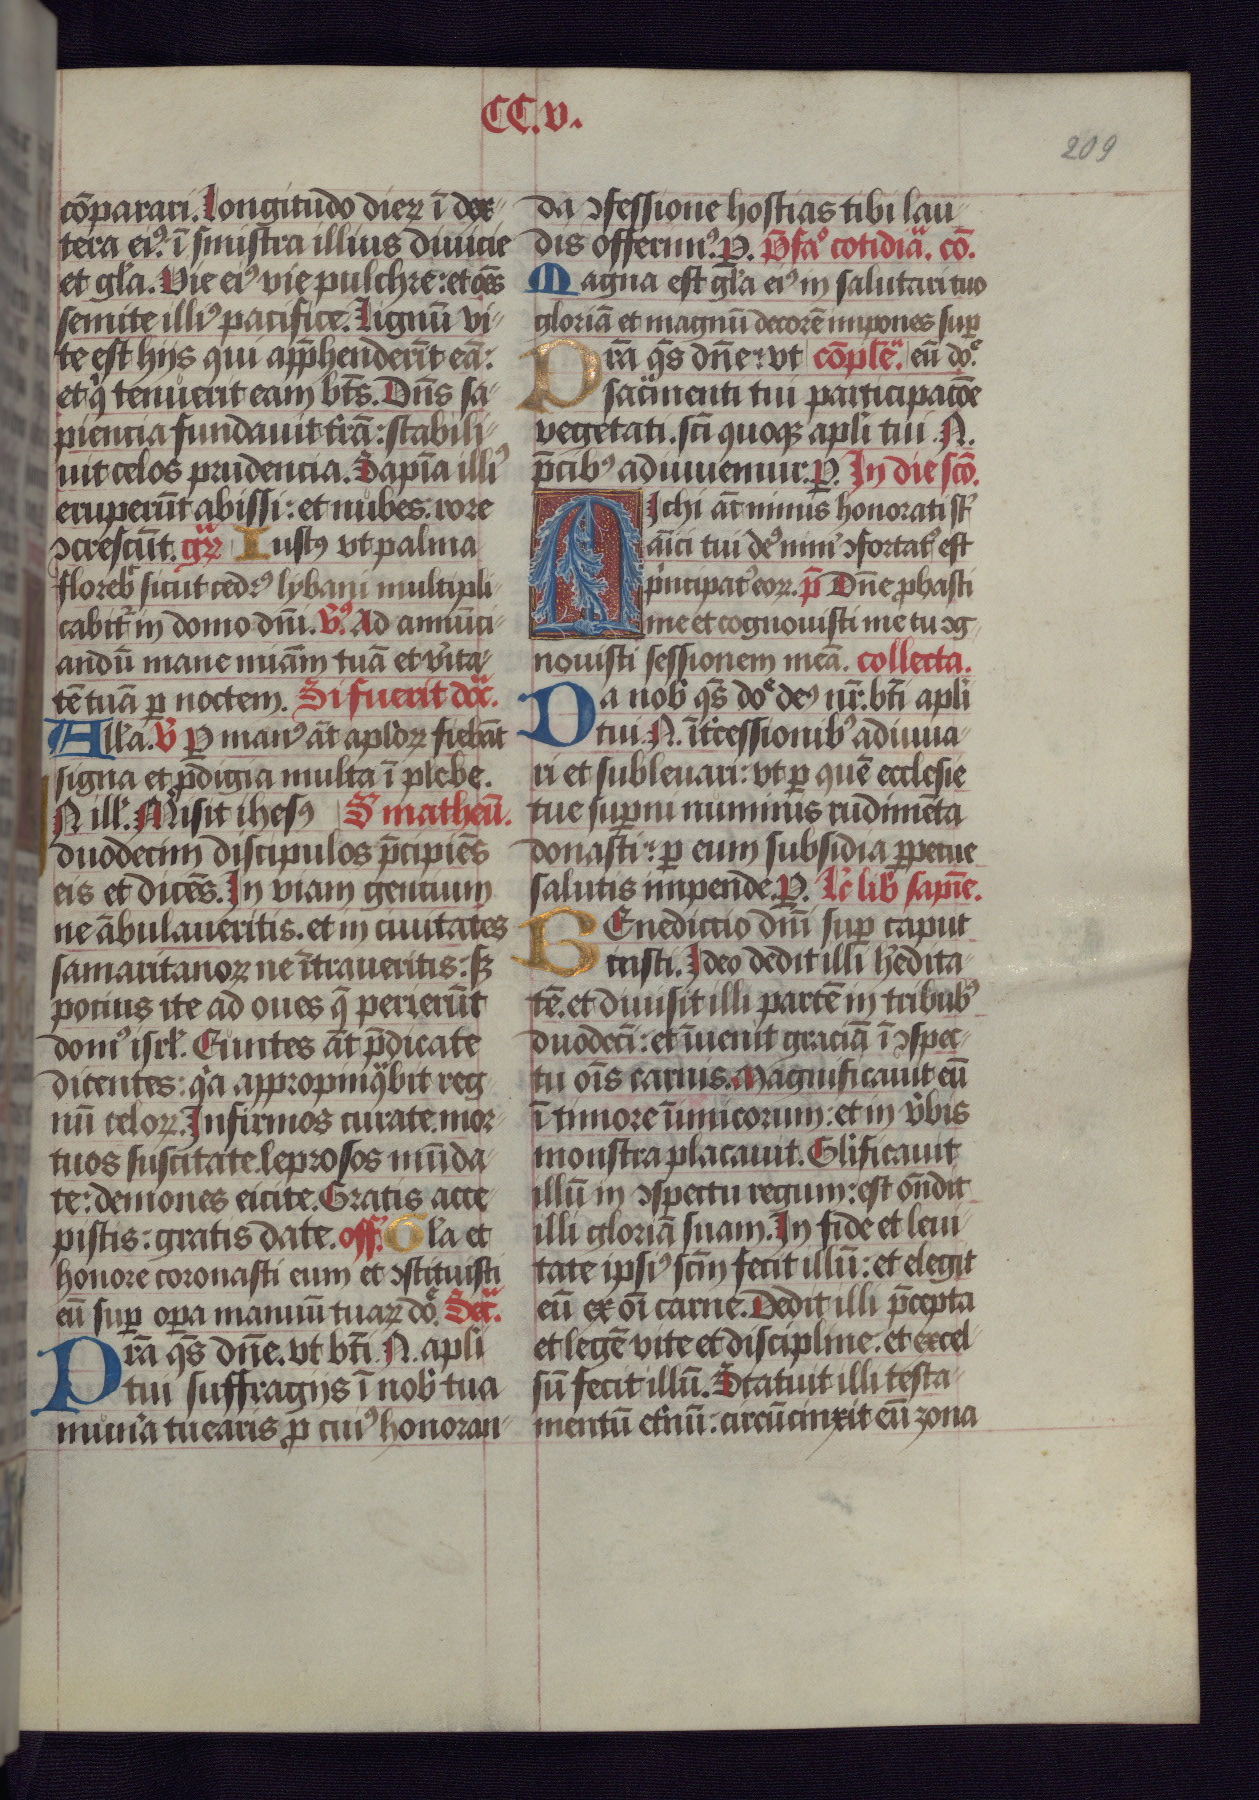 CC.v.
209
cōparari. Longitudo dieꝝ ī dex-
tera eiꝰ. ī sinistra illius diuicie
et gl̄a. Vie eiꝰ vie pulchre: et oēs
semite illiꝰ pacifice. Lignū vi-
te est hijs qui app̄henderīt eā:
et q̇ tenuerit eam bt̄s. Dn̄s sa-
piencia fundauit t̄rā: stabili-
uit celos prudencia. Sapīa illiꝰ
eruperūt abissi: et nubes rore
ꝯcrescūt. gr̄ Iustꝰ vt palma
florebꝭ sicut cedrꝰ lybani multipli-
cabit̄ in domo dn̄i. v̄ꝰ. Ad annūci-
andū mane mīam tuā et v̄ita-
tē tuā ꝑ noctem. Si fuerit do͡c.
All̄a. v̄ ꝑ manꝰ āt apl̄oꝝ fiebāt
signa et ꝓdigia multa ī plebe.
N ill̄. Misit ihesꝰ S matheū.
duodecim discipulos p̄cipiēs
eis et dicēs. In viam gentium
ne ābulaueritis. et in ciuitates
samaritanoꝝ ne ītraueritis: sꝫ
pocius ite ad oues q̄ perierūt
domꝰ isrl̄. Euntes āt p̄dicate
dicentes: qͥa appropinqͣbit reg-
nū celoꝝ. Infirmos curate. mor-
tuos suscitate. leprosos mūda-
te: demones eicite. Gratis acce-
pistis: gratis date. off̄ Gl̄a et
honore coronasti eum et ꝯstituisti
eū suꝑ oꝑa manuū tuaꝝ dō. Secͣ.
Orā qs̄ dn̄e. vt bt̄i N. apl̄i
tui suffragijs ī nob̄ tua
mun̄a tuearis ꝓ cuiꝰ honoran-
da ꝯfessione hostias tibi lau-
dis offerimꝰ. P. P̄faꝰ cotidiāͣ. cō.
Magna est gl̄a eiꝰ in salutari tuo
gloriā et magnū decorē impones suꝑ
Orā qs̄ dn̄e: vt cōpl̄e͡. eū dō.
sac̄menti tui participacōe
vegetati. sc̄i quoqꝫ apl̄i tui. N.
p̄cibꝰ adiuuemur. P. In die sc̄o.
Michi āt nimis honorati st̄
aīci tui deꝰ nimꝭ ꝯfortatꝰ est
pͥncipatꝰ eoꝝ. p̄ Dn̄e ꝓbasti
me et cognouisti me tu ꝯg-
nouisti sessionem meā. collecta.
Da nob̄ qs̄ dō deꝰ nr̄. bt̄i apl̄i
tui. N. īt̄cessionibꝰ adiuua-
ri et subleuari: vt ꝑ quē ecclesie
tue suꝑni numinis rudimēta
donasti: ꝑ eum subsidia ꝑpetue
salutis impende. P. Lc̄ lib̄ sapīe.
Benedictio dn̄i suꝑ caput
iusti. Ideo dedit illi h̄edita-
tē. et diuisit illi partē in tribubꝰ
duodecī: et īuenit graciā ī ꝯspec-
tu oīs carnis. Magnificauit eū
ī timore īimicorum: et in v̄bis
monstra placauit. Gl̄ificauit
illū in ꝯspectu regum: est on̄dit
illi gloriā suam. In fide et leni-
tate ipsiꝰ sc̄m fecit illū: et elegit
eū ex oī carne. Dedit illi p̄cepta
et legē vite et discipline. et excel-
sū fecit illū. Statuit illi testa-
mentū et̄nū: circūcinxit eū zona